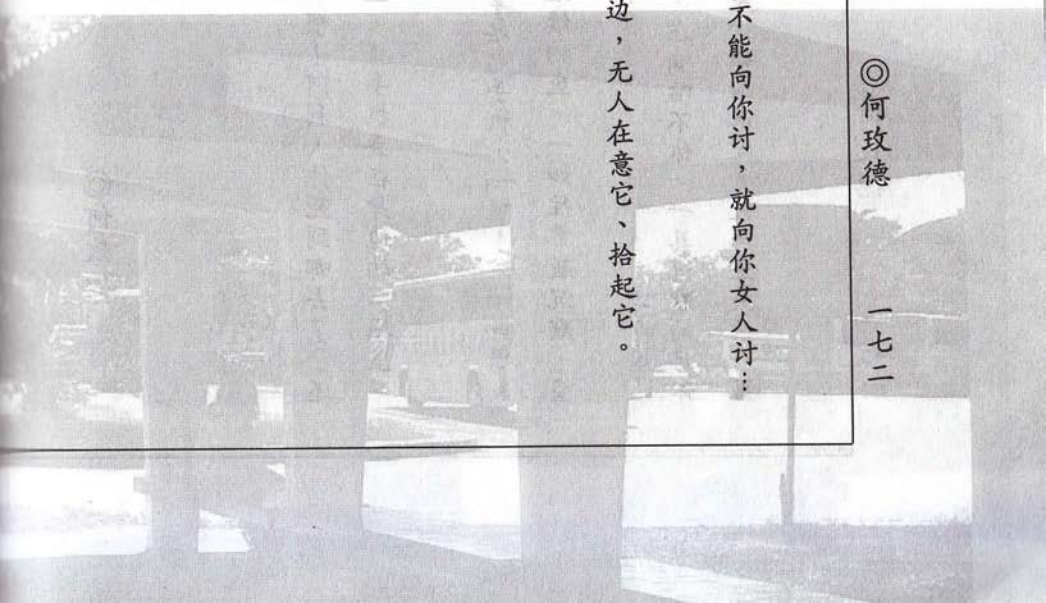 ◎何玫德 一七二
不能向你讨，就向你女人讨…
边，无人在意它、拾起它。